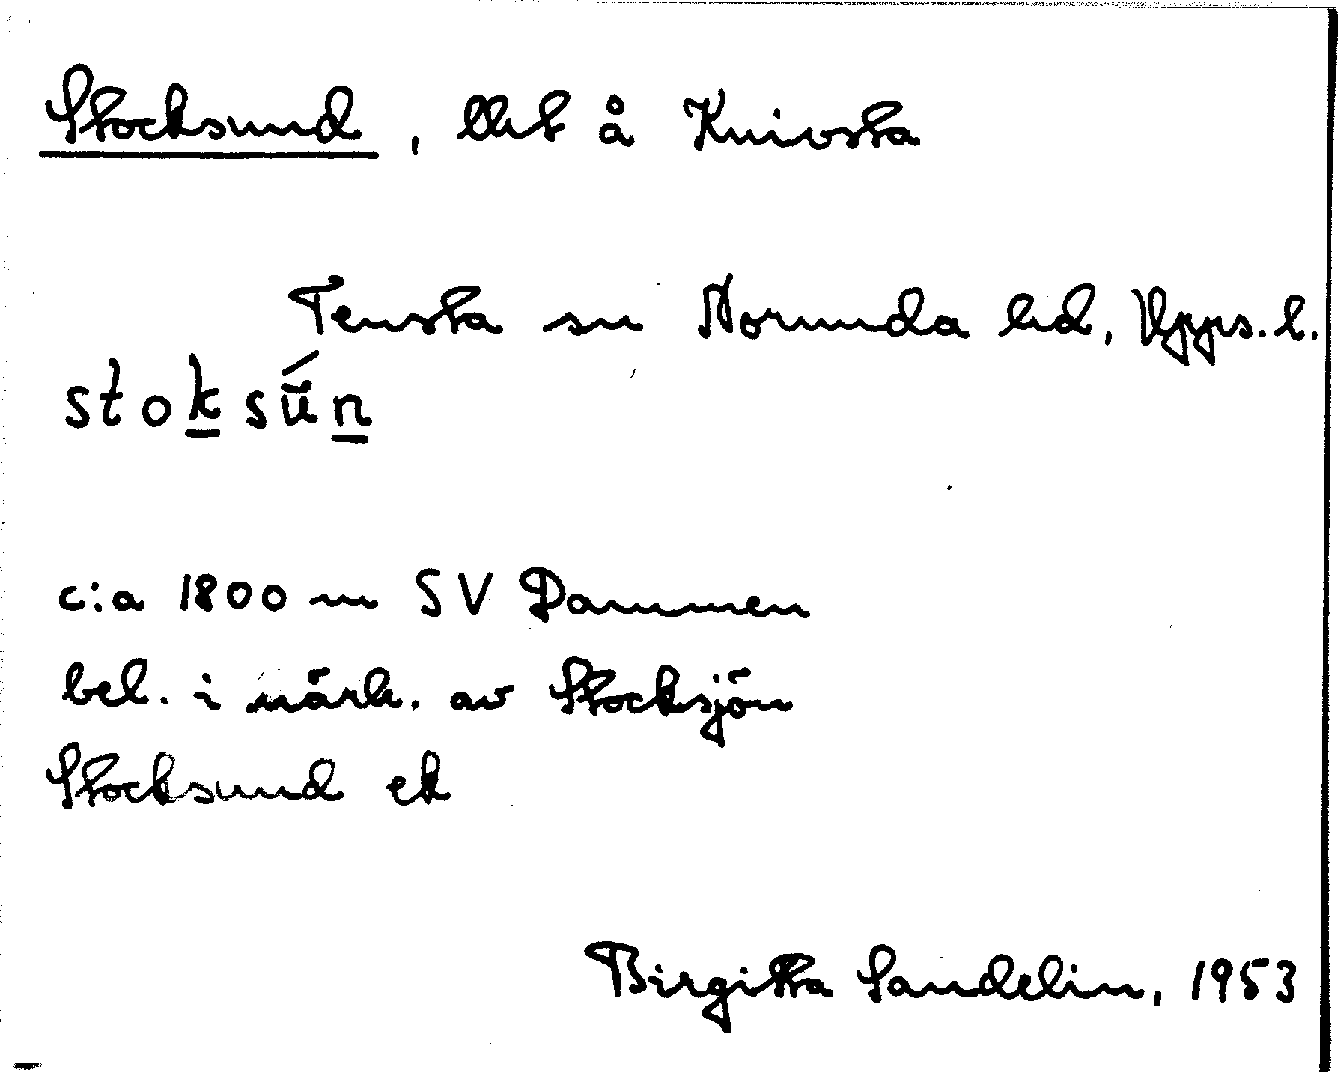 Stocksund, lht å Knivsta
Tensta sn Norunda hd, Upps. l.
stoksŭ́n
c:a 1800 m SV Dammen
bel. i närh. av Stocksjön
Stocksund ek
Birgitta Sandelin, 1953